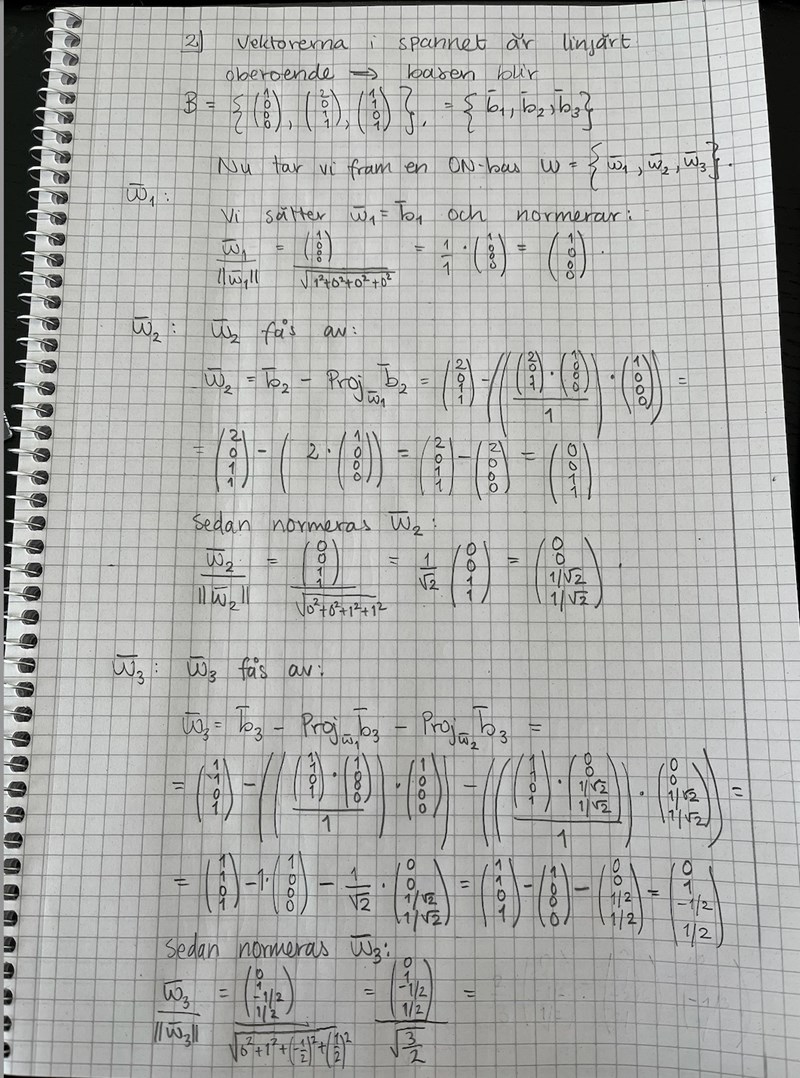 2) Vektorerna i spannet är linjärt
oberoende → basen blir
B = {(1 0 0 0), (2 0 1 1), (1 1 0 1)}. = {b̄₁, b̄₂, b̄₃}
Nu tar vi fram en ON-bas W = {w̄₁, w̄₂, w̄₃}.
w̄₁:
Vi sätter w̄₁ = b̄₁ och normerar:
w̄₁/||w̄₁|| = (1 0 0 0)/√(1²+0²+0²+0²) = 1/1 · (1 0 0 0) = (1 0 0 0).
w̄₂: w̄₂ fås av:
w̄₂ = b̄₂ - Proj_w̄₁ b̄₂ = (2 0 1 1) - (((2 0 1 1) · (1 0 0 0))/1 · (1 0 0 0)) =
= (2 0 1 1) - (2 · (1 0 0 0)) = (2 0 1 1) - (2 0 0 0) = (0 0 1 1)
Sedan normeras w̄₂:
w̄₂/||w̄₂|| = (0 0 1 1)/√(0²+0²+1²+1²) = 1/√2 (0 0 1 1) = (0 0 1/√2 1/√2).
w̄₃: w̄₃ fås av:
w̄₃ = b̄₃ - Proj_w̄₁ b̄₃ - Proj_w̄₂ b̄₃ =
= (1 1 0 1) - (((1 1 0 1) · (1 0 0 0))/1 · (1 0 0 0)) - (((1 1 0 1) · (0 0 1/√2 1/√2))/1 · (0 0 1/√2 1/√2)) =
= (1 1 0 1) - 1·(1 0 0 0) - 1/√2 · (0 0 1/√2 1/√2) = (1 1 0 1) - (1 0 0 0) - (0 0 1/2 1/2) = (0 1 -1/2 1/2)
Sedan normeras w̄₃:
w̄₃/||w̄₃|| = (0 1 -1/2 1/2)/√(0²+1²+(-1/2)²+(1/2)²) = (0 1 -1/2 1/2)/√(3/2) =